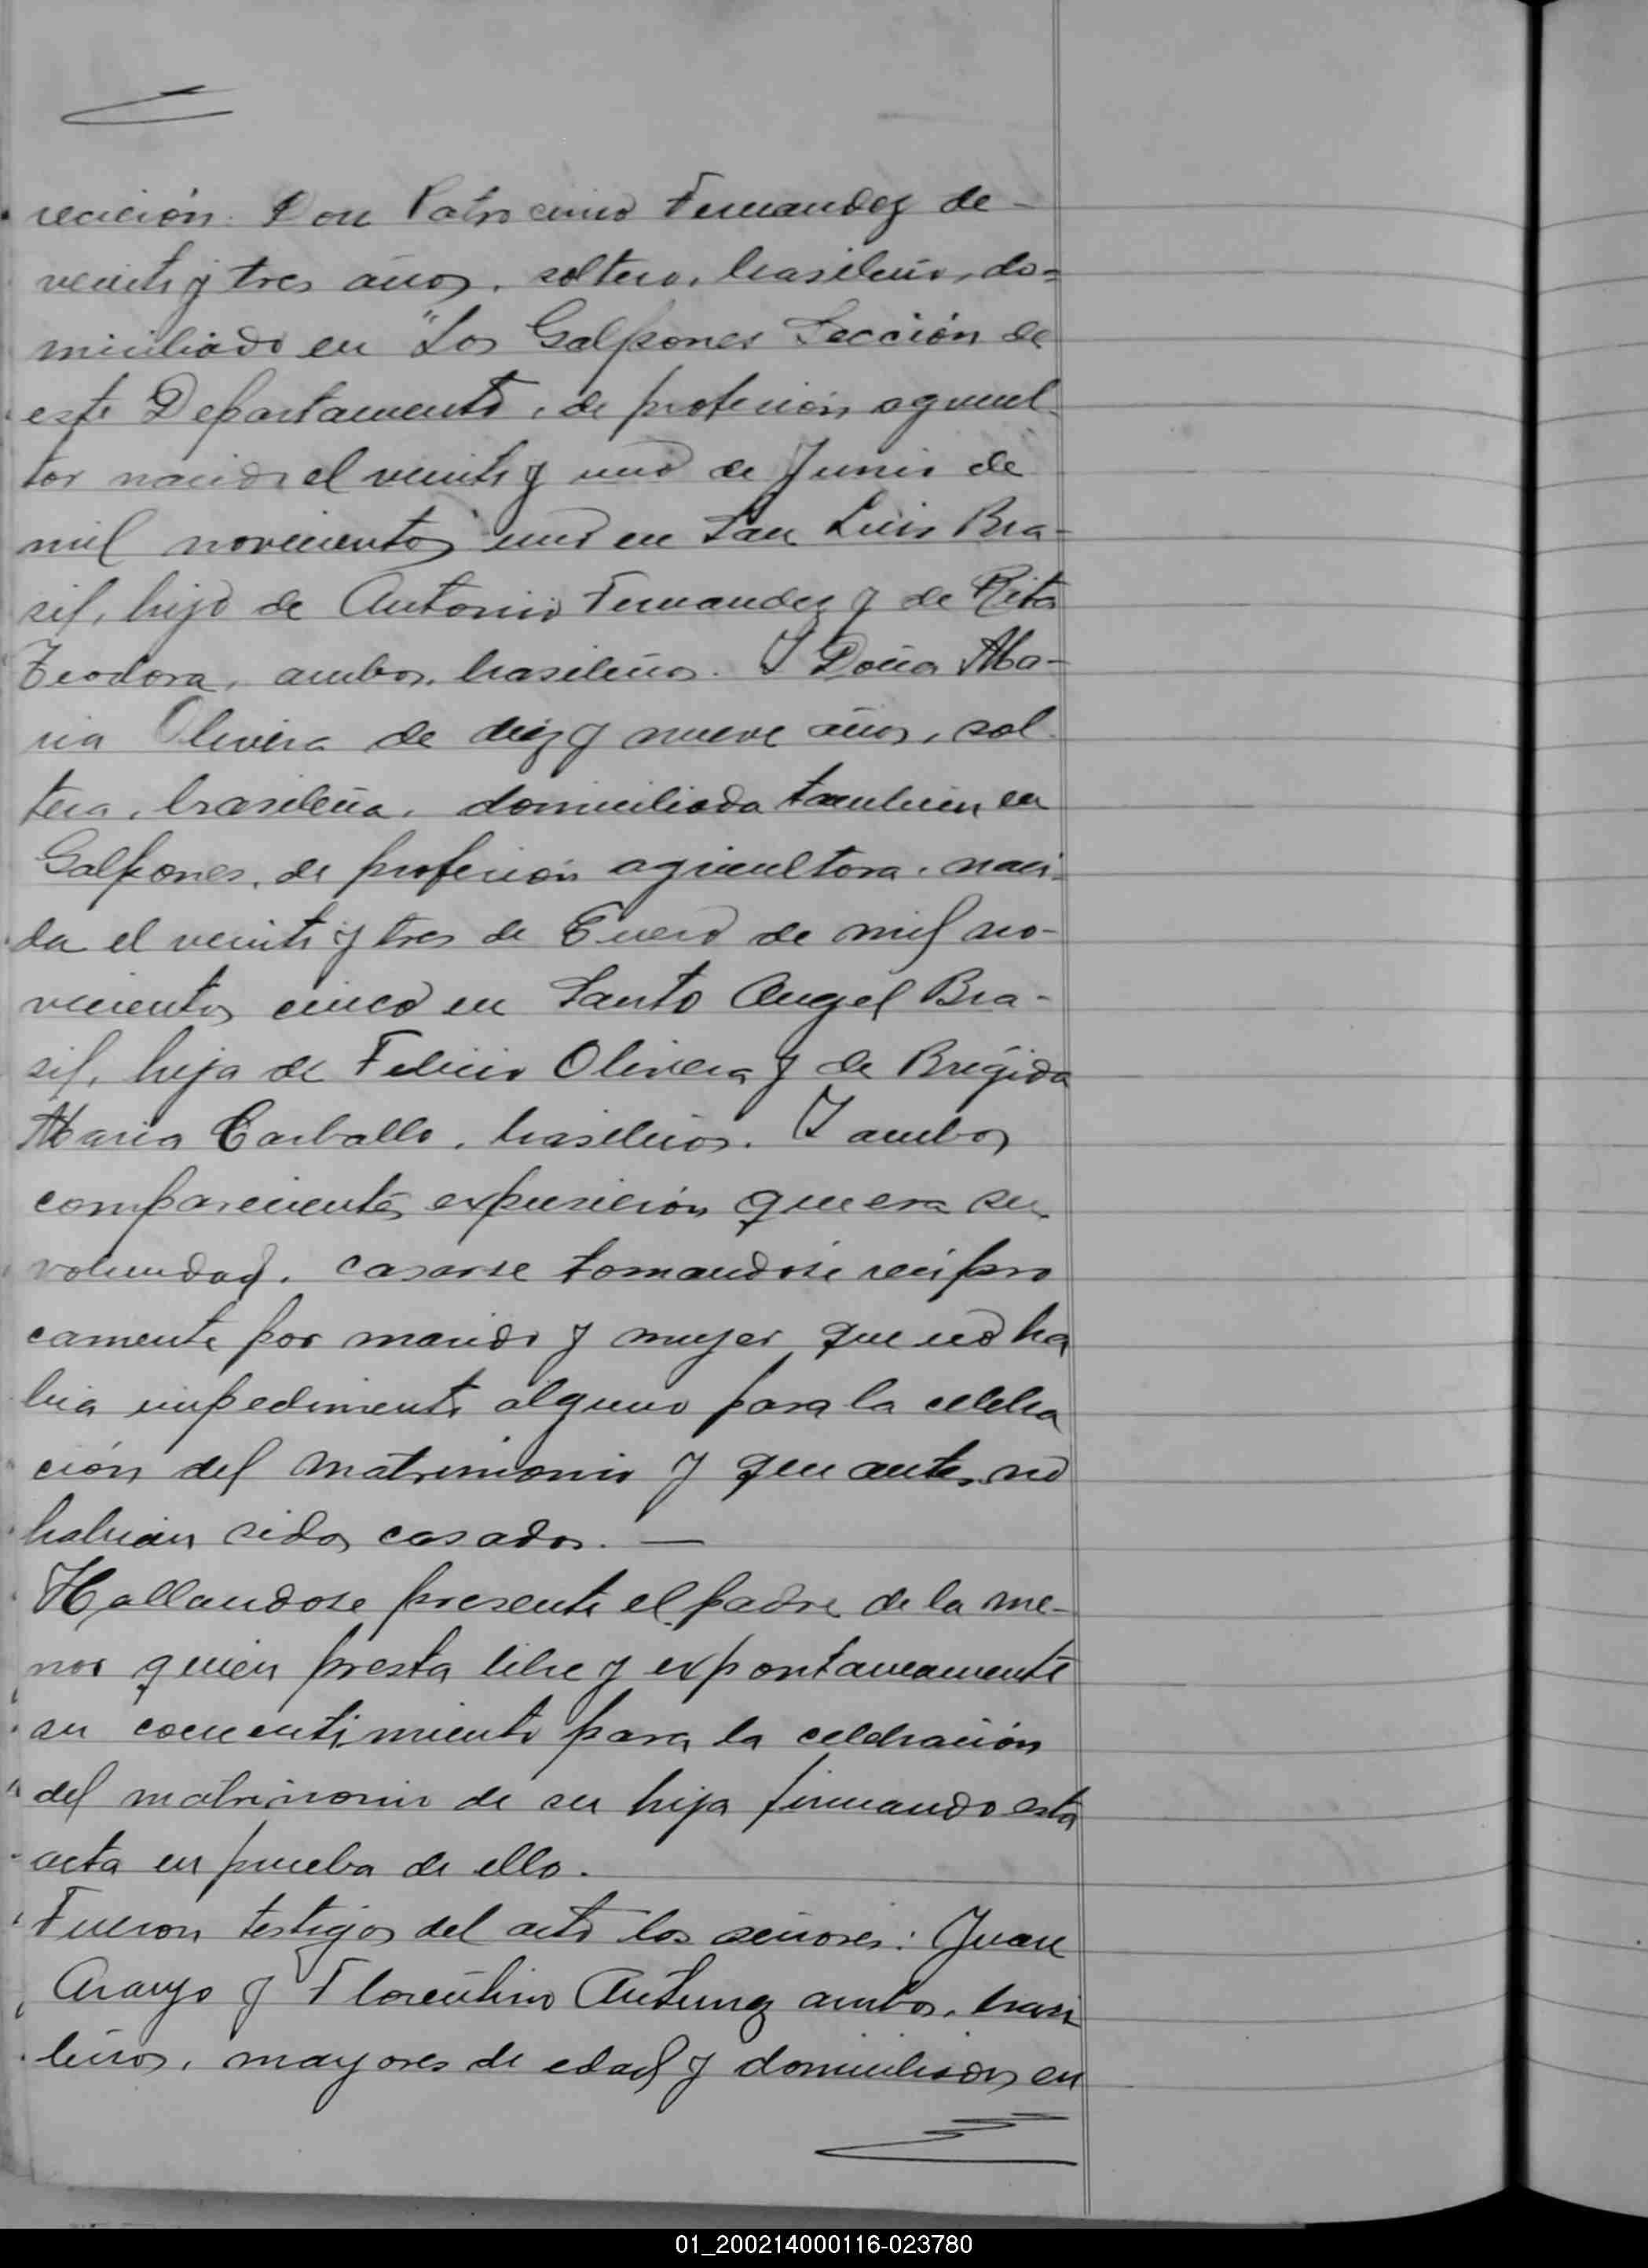 recieron: Don Patrocinio Fernandez de-
veinte y tres años, soltero, brasileño, do=
miciliado en "Los Galpones Sección de
este Departamento, de profesión agricul-
tor nacido el veinte y uno de Junio de
mil novecientos uno en San Luis Bra-
sil, hijo de Antonio Fernandez y de Rita
Teodora, ambos, brasileños. I Doña Ma-
ria Olivera de diez y nueve años, sol-
tera, brasileña, domiciliada tambien en
Galpones, de profesión agricultora, naci-
da el veinte y tres de Enero de mil no-
vecientos cinco en Santo Angel Bra-
sil, hija de Felicio Olivera y de Brigida
Maria Carballo, brasileños. I ambos
comparecientes expusieron que era su
volundad, casarse tomandose recipro
camente por marido y mujer que no ha
bia impedimento alguno para la celebra
ción del matrimonio y que antes no
habian sidos casados. —
Hallandose presente el padre de la me-
nor quien presta libre y expontaneamente
su consentimiento para la celebración
del matrimonio de su hija firmando esta
acta en prueba de ello.
Fueron testigos del acto los señores: Juan
Araujo y Florentino Antunez ambos, brasi
leños, mayores de edad y domiciliados en
01_200214000116-023780